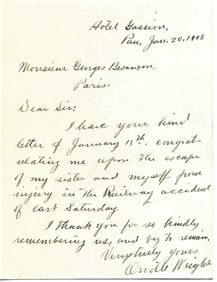 Hotel Gassion,
Pau, Jan. 20, 1909
Monsieur Georges Besancon.
Paris.
Dear Sir:
I have your kind
letter of January 18th, congrat-
ulating me upon the escape
of my sister and myself from
injury in the Railway accident
of last Saturday.
I thank you for so kindly
remembering us, and beg to remain,
Very truly yours
Orville Wright.